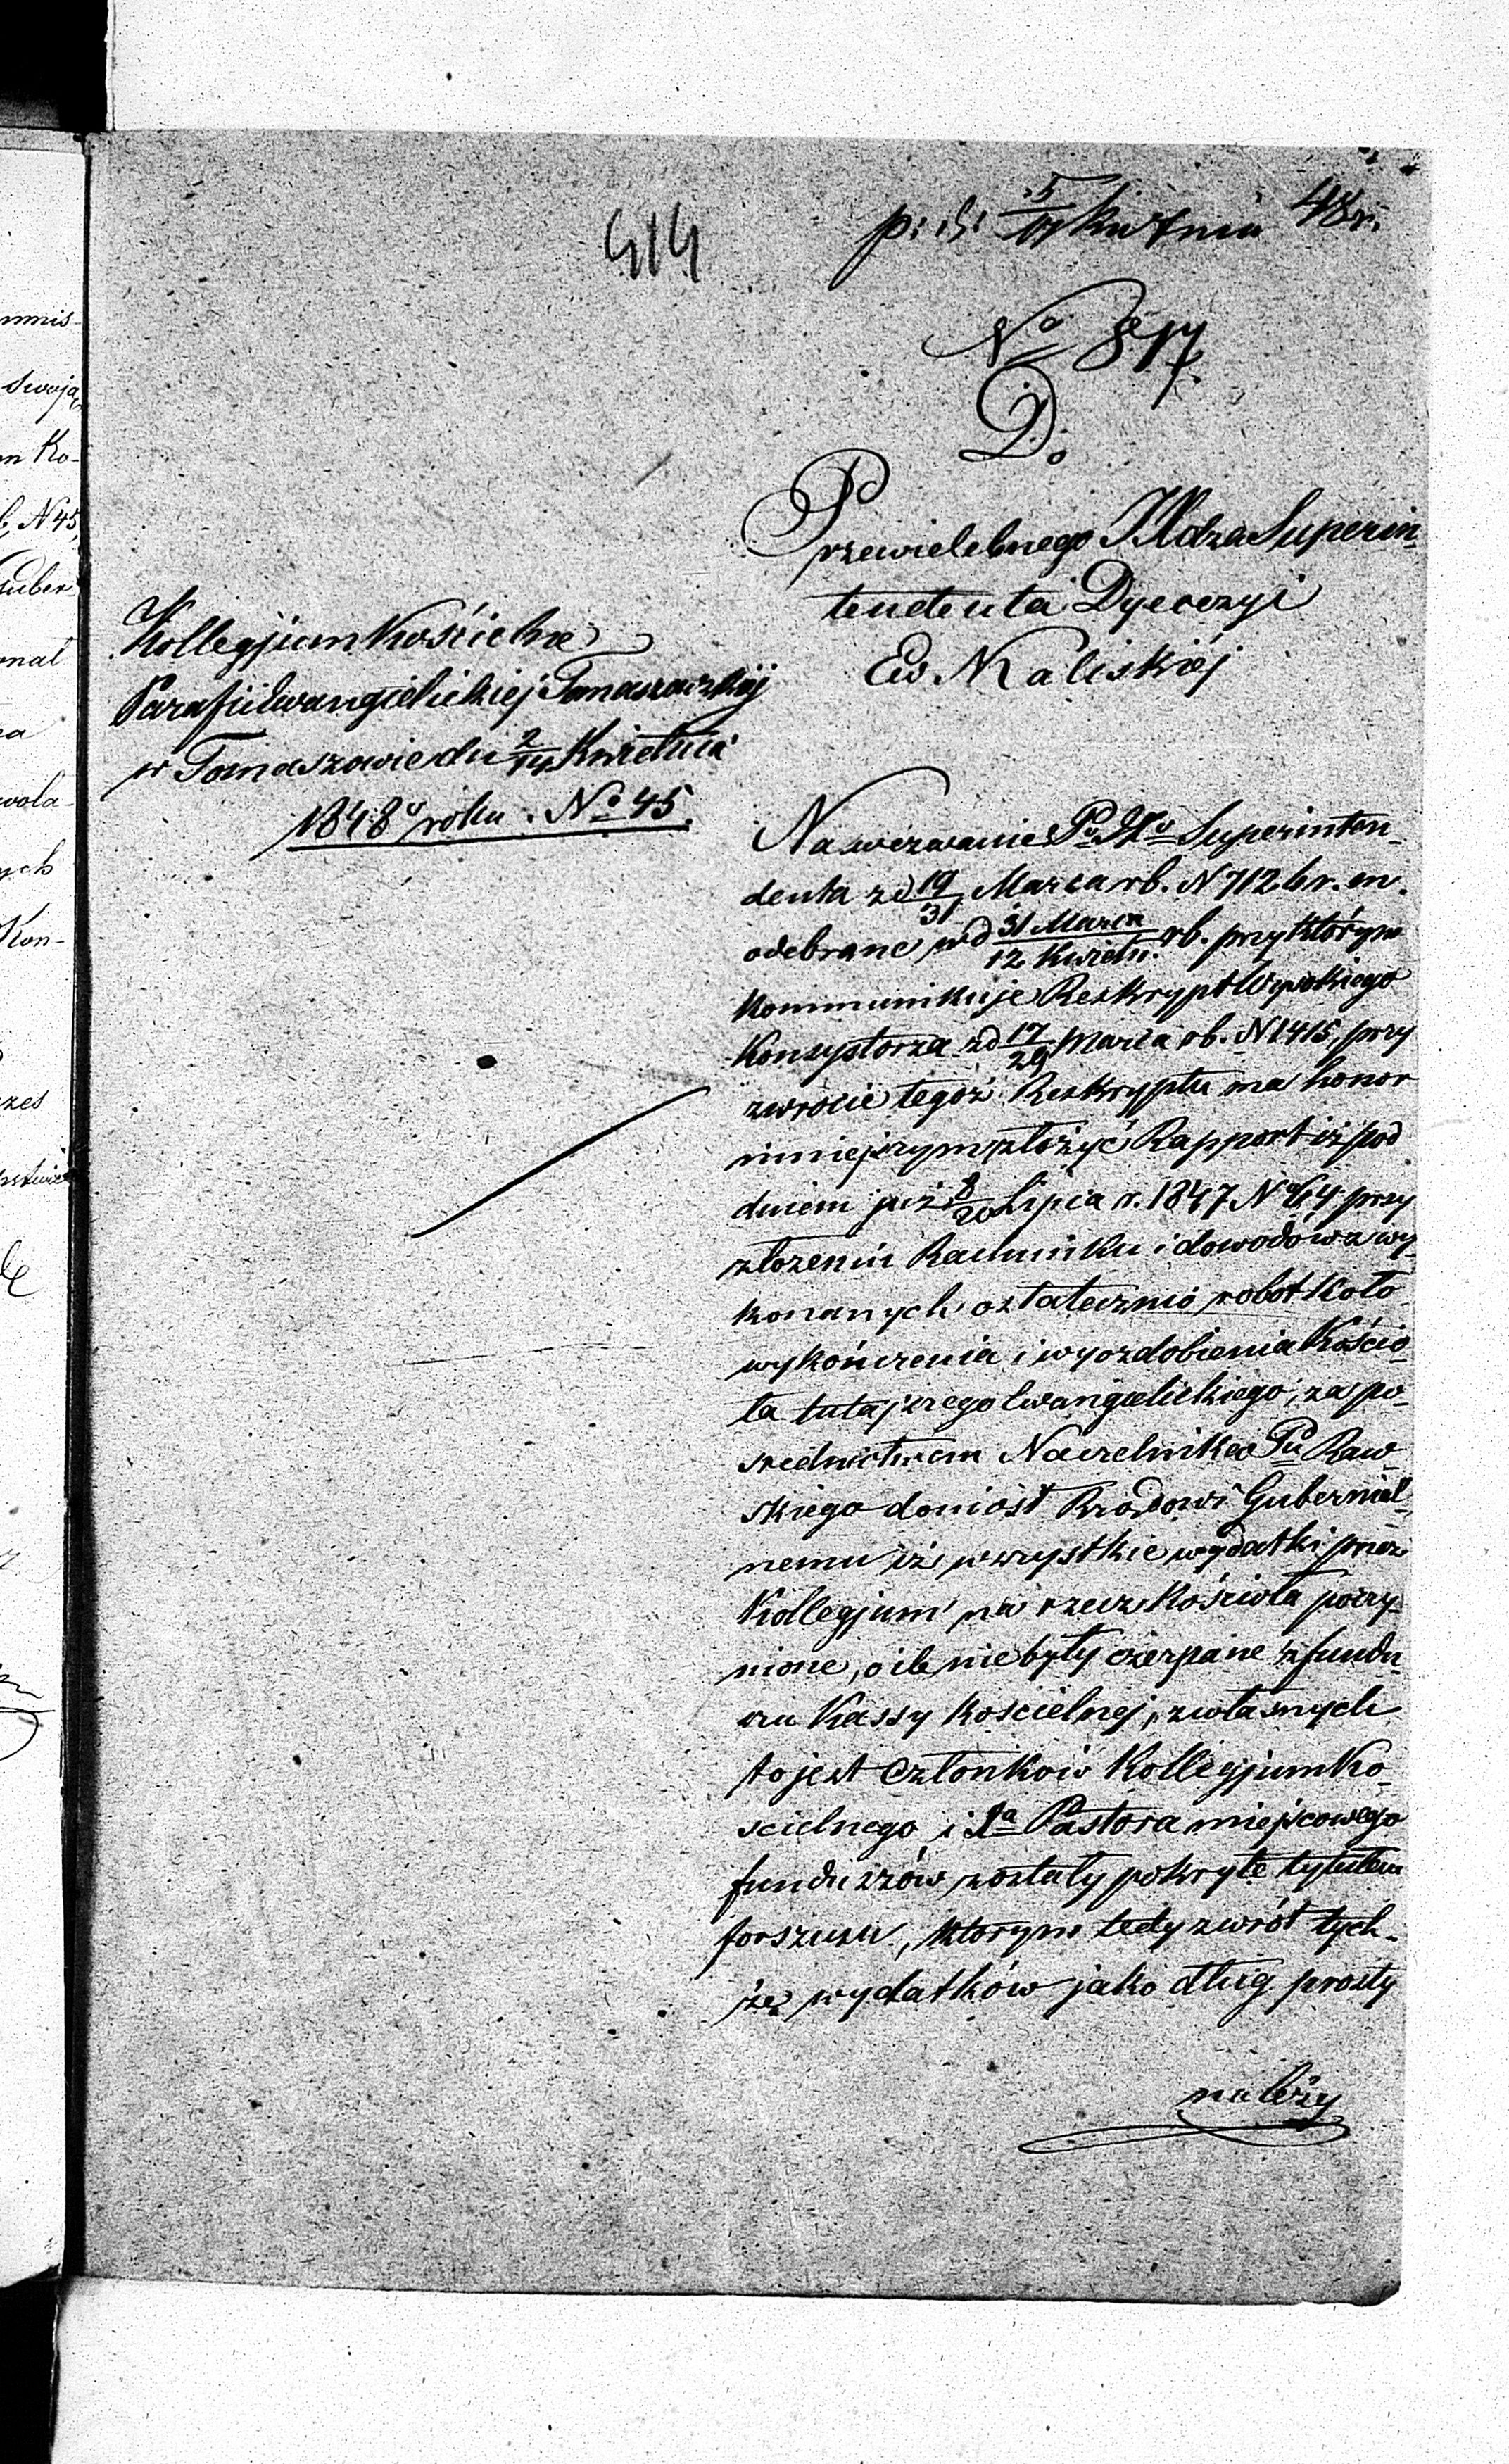 414
p: d: 5/17 Kwietnia 48 r.
No 817
Do
Przewielebnego JXdza Superin-
tendenta Dyecezyi
Ew. Kaliskiéj
Kollegjum Kościelne
Parafii Ewangielickiej Tomaszowskiéj
w Tomaszowie dn 2/14 Kwietnia
1848 roku. No 45.
Na wezwanie Po Xo Superinten-
denta z d 19/31 Marca rb. N 712 b r. m.
odebrane w d 31 Marca/12 Kwietn. rb. przy którym
kommunikuje Reskrypt Wysokiego
Konsystorza z d 17/29 Marca rb. N 1415, przy
zwrocie tegoż Reskryptu ma honor
ninniejszym złożyć Rapport iż pod
dniem już 8/20 Lipca r. 1847 No 64 przy
złożeniu Rachunku i dowodów z wy-
konanych ostatecznie robot koło
wykończenia i wyozdobienia Kościo-
ła tutajszego Ewangielickiego, za po-
srednictwem Naczelnika Pu Raw-
skiego doniosł Rządowi Gubernial-
nemu iż wszystkie wydatki przez
Kollegjum na rzecz Kościoła poczy-
nione, o ile nie były czerpane z fundu-
szu Kassy Koscielnej, z własnych
to jest Członków Kollegjum Ko-
scielnego i Xa Pastora miejscowego
funduszów zostały pokryte tytułem
forszusu, ktorym tedy zwrót tych-
że wydatków jako dług prosty
należy